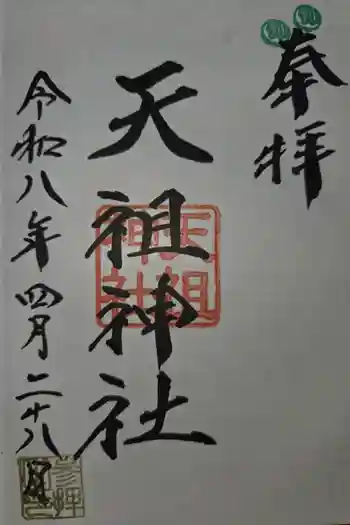 奉拝
天祖神社
天祖神社
令和八年四月二十八日
参拝